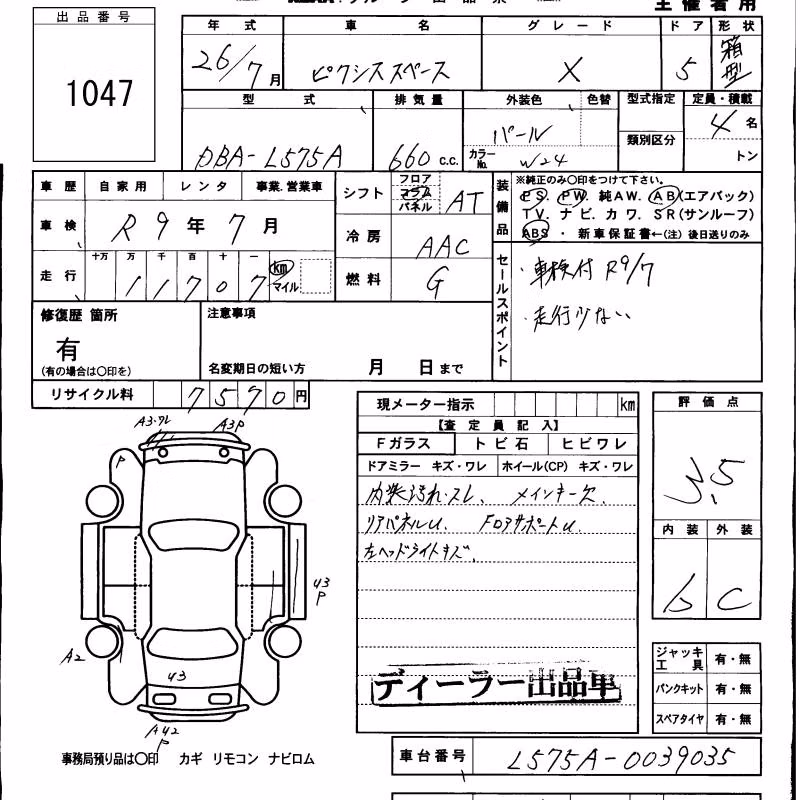 主催者用
出品番号
1047
年式 車名 グレード ドア 形状
26/7月 ピクシススペース X 5 箱型
型式 排気量 外装色 色替 型式指定 定員・積載
DBA-L575A 660 c.c. パール 4名
カラーNo. W24 類別区分 トン
車歴 自家用 レンタ 事業.営業車
シフト フロア コラム パネル AT
車検 R9年7月
冷房 AAC
走行 十万 万 千 百 十 一
11707 km マイル
燃料 G
装備品 ※純正のみ〇印をつけて下さい。
PS. PW. 純AW. AB(エアバック)
TV. ナビ. カワ. SR(サンルーフ)
ABS ・ 新車保証書←(注) 後日送りのみ
セールスポイント
・車検付 R9/7
・走行少ない
修復歴 箇所
有
(有の場合は〇印を)
注意事項
名変期日の短い方 月 日まで
リサイクル料 7570円
現メーター指示 km
【査定員記入】
Fガラス トビ石 ヒビワレ
ドアミラー キズ・ワレ ホイール(CP) キズ・ワレ
内装汚れ・スレ、 メインキー欠、
リアパネルU、 FロアサポートU、
左ヘッドライトキズ、
ディーラー出品車
評価点
3.5
内装 外装
b C
ジャッキ工具 有・無
パンクキット 有・無
スペアタイヤ 有・無
A3・ワレ A3P
P
U3
P
A2
U3
AU2
P
事務局預り品は〇印 カギ リモコン ナビロム
車台番号 L575A-0039035